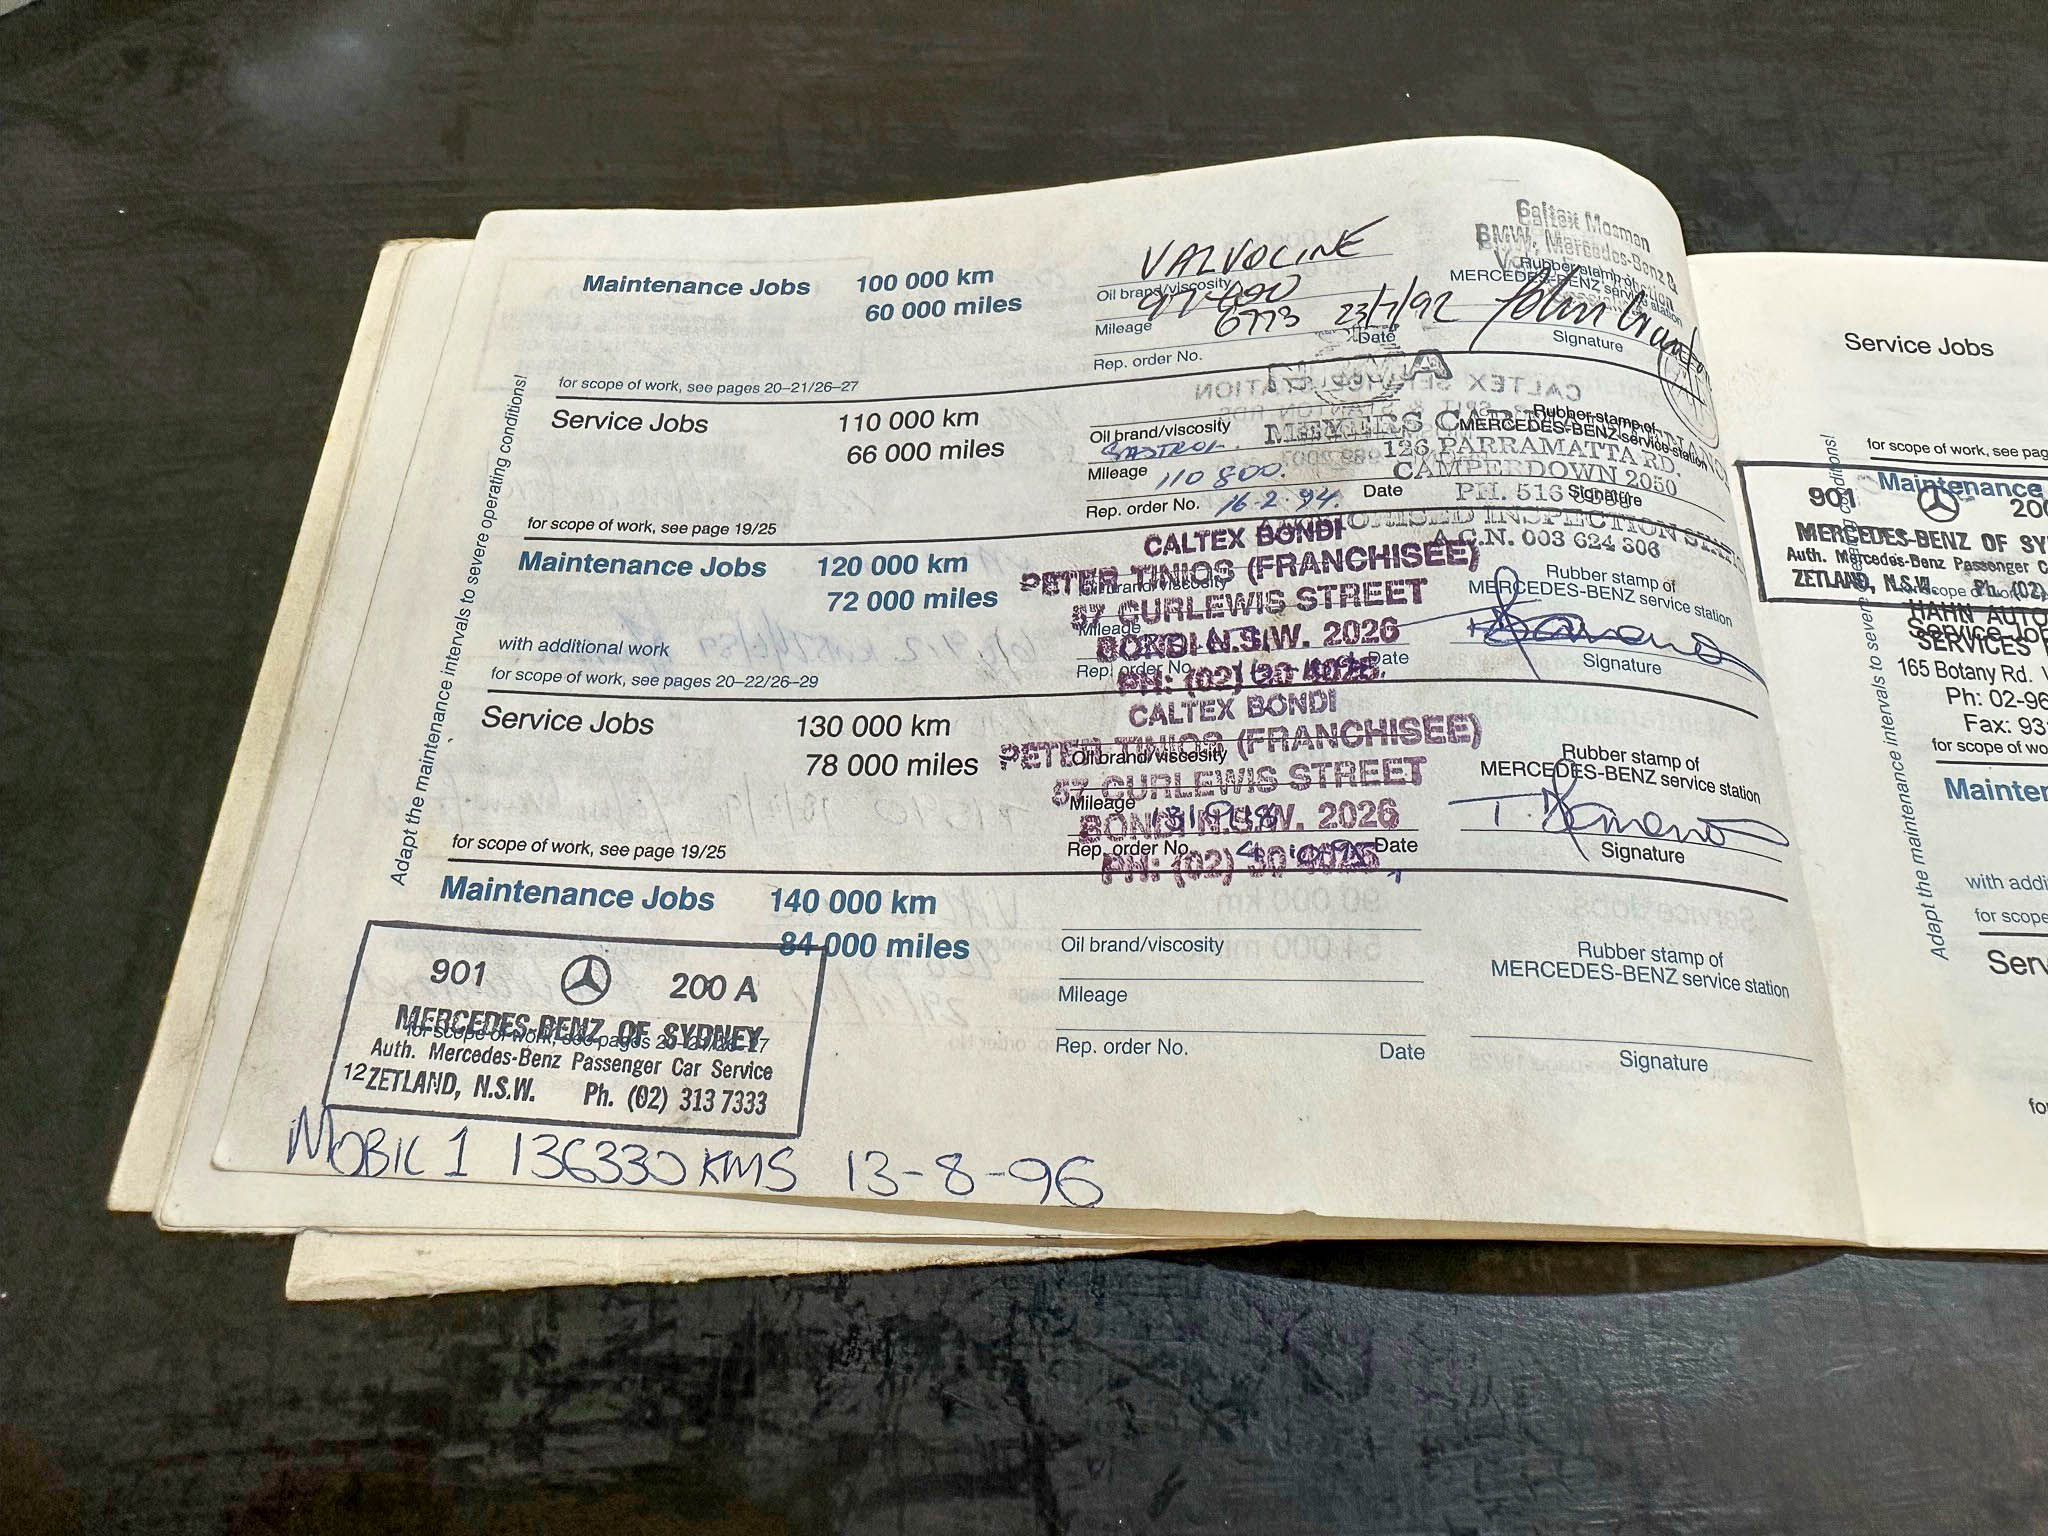 Maintenance Jobs 100 000 km
60 000 miles
VALVOLINE
Oil brand/viscosity
Mileage
6773
23/7/92
Date
Rep. order No.
Caltex Mosman
BMW, Mercedes-Benz &
Rubber stamp of
MERCEDES-BENZ service station
Signature
for scope of work, see pages 20–21/26–27
Service Jobs 110 000 km
66 000 miles
Oil brand/viscosity
CASTROL
Mileage 110 800.
Rep. order No. 16-2-94. Date
Rubber stamp of
MERCEDES-BENZ service station
126 PARRAMATTA RD.
CAMPERDOWN 2050
PH. 516
Signature
AUTHORISED INSPECTION STATION
A.C.N. 003 624 306
for scope of work, see page 19/25
Maintenance Jobs 120 000 km
72 000 miles
with additional work
for scope of work, see pages 20–22/26–29
CALTEX BONDI
PETER TINIOS (FRANCHISEE)
57 CURLEWIS STREET
BONDI N.S.W. 2026
PH: (02) 30 4025
Oil brand/viscosity
Mileage
Rep. order No. Date
Rubber stamp of
MERCEDES-BENZ service station
Signature
Service Jobs 130 000 km
78 000 miles
CALTEX BONDI
PETER TINIOS (FRANCHISEE)
57 CURLEWIS STREET
BONDI N.S.W. 2026
PH: (02) 30 4025
Oil brand/viscosity
Mileage
Rep. order No. Date
Rubber stamp of
MERCEDES-BENZ service station
Signature
for scope of work, see page 19/25
Maintenance Jobs 140 000 km
84 000 miles
Oil brand/viscosity
Mileage
Rep. order No. Date
Rubber stamp of
MERCEDES-BENZ service station
Signature
901 200 A
MERCEDES-BENZ OF SYDNEY
for scope of work, see pages 20–21/26–27
Auth. Mercedes-Benz Passenger Car Service
12 ZETLAND, N.S.W. Ph. (02) 313 7333
MOBIL 1 136330 KMS 13-8-96
Adapt the maintenance intervals to severe operating conditions!
Service Jobs
for scope of work, see pag
Maintenance
901 200
MERCEDES-BENZ OF SY
Auth. Mercedes-Benz Passenger Ca
ZETLAND, N.S.W. Ph. (02)
HAHN AUTO
SERVICES
165 Botany Rd.
Ph: 02-96
Fax: 93
for scope of wo
Mainte
with addi
for scope
Serv
fo
Adapt the maintenance intervals to severe